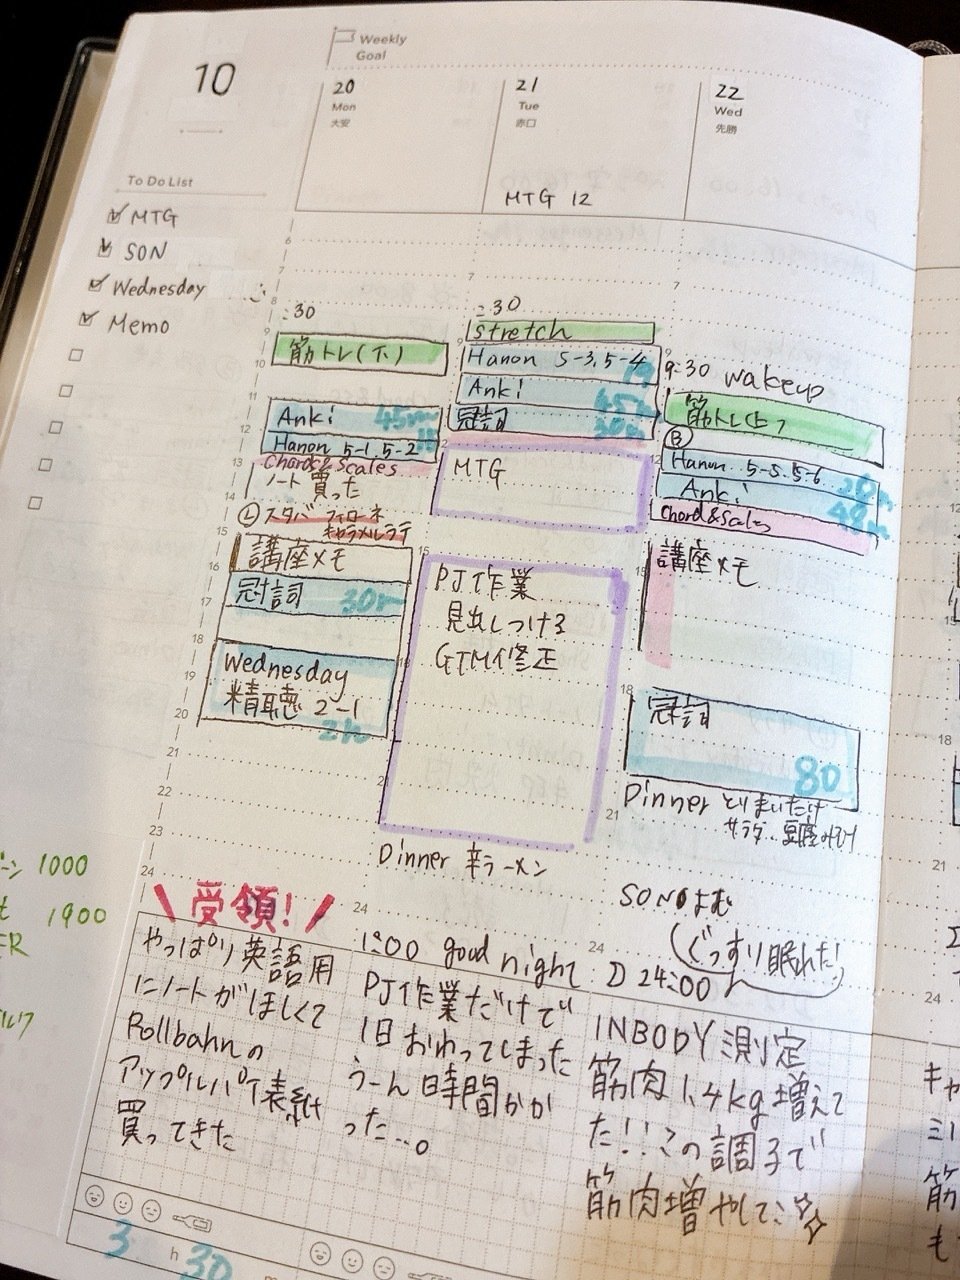 10
Weekly
Goal
To Do List
MTG
SON
Wednesday
Memo
20
Mon
大安
6
7
8
:30
9
10
筋トレ(下)
11
Anki 45m
12
Hanon 5-1, 5-2
13
Chord&Scales
ノート買った
14
Ⓛスタバ
キャラメルラテ
15
講座メモ
16
冠詞 30m
17
18
Wednesday
19
精聴 2-1
20
2h
21
22
23
24
受領!
やっぱり英語用
にノートがほしくて
Rollbahnの
アップルパイ表紙
買ってきた
3 h 30
21
Tue
赤口
MTG 12
:30
stretch
9
Hanon 5-3, 5-4
Anki 45m
冠詞 30m
12
MTG
15
PJ作業
見出しつける
GTMイ修正
18
21
Dinner 辛ラーメン
24
1:00 good night
PJ作業だけで
1日おわってしまった
うーん時間かか
った…。
22
Wed
先勝
7
9
9:30 wakeup
筋トレ(上)
Ⓑ
12
Hanon 5-5, 5-6
Anki 48m
Chord&Scales
15
講座メモ
18
冠詞
80
Dinner とりまいたけ
サラダ
21
SONよむ
ぐっすり眠れた!
24
24:00
INBODY測定
筋肉1.4kg増えて
た!!この調子で
筋肉増やして
1000
1900
18
21
24